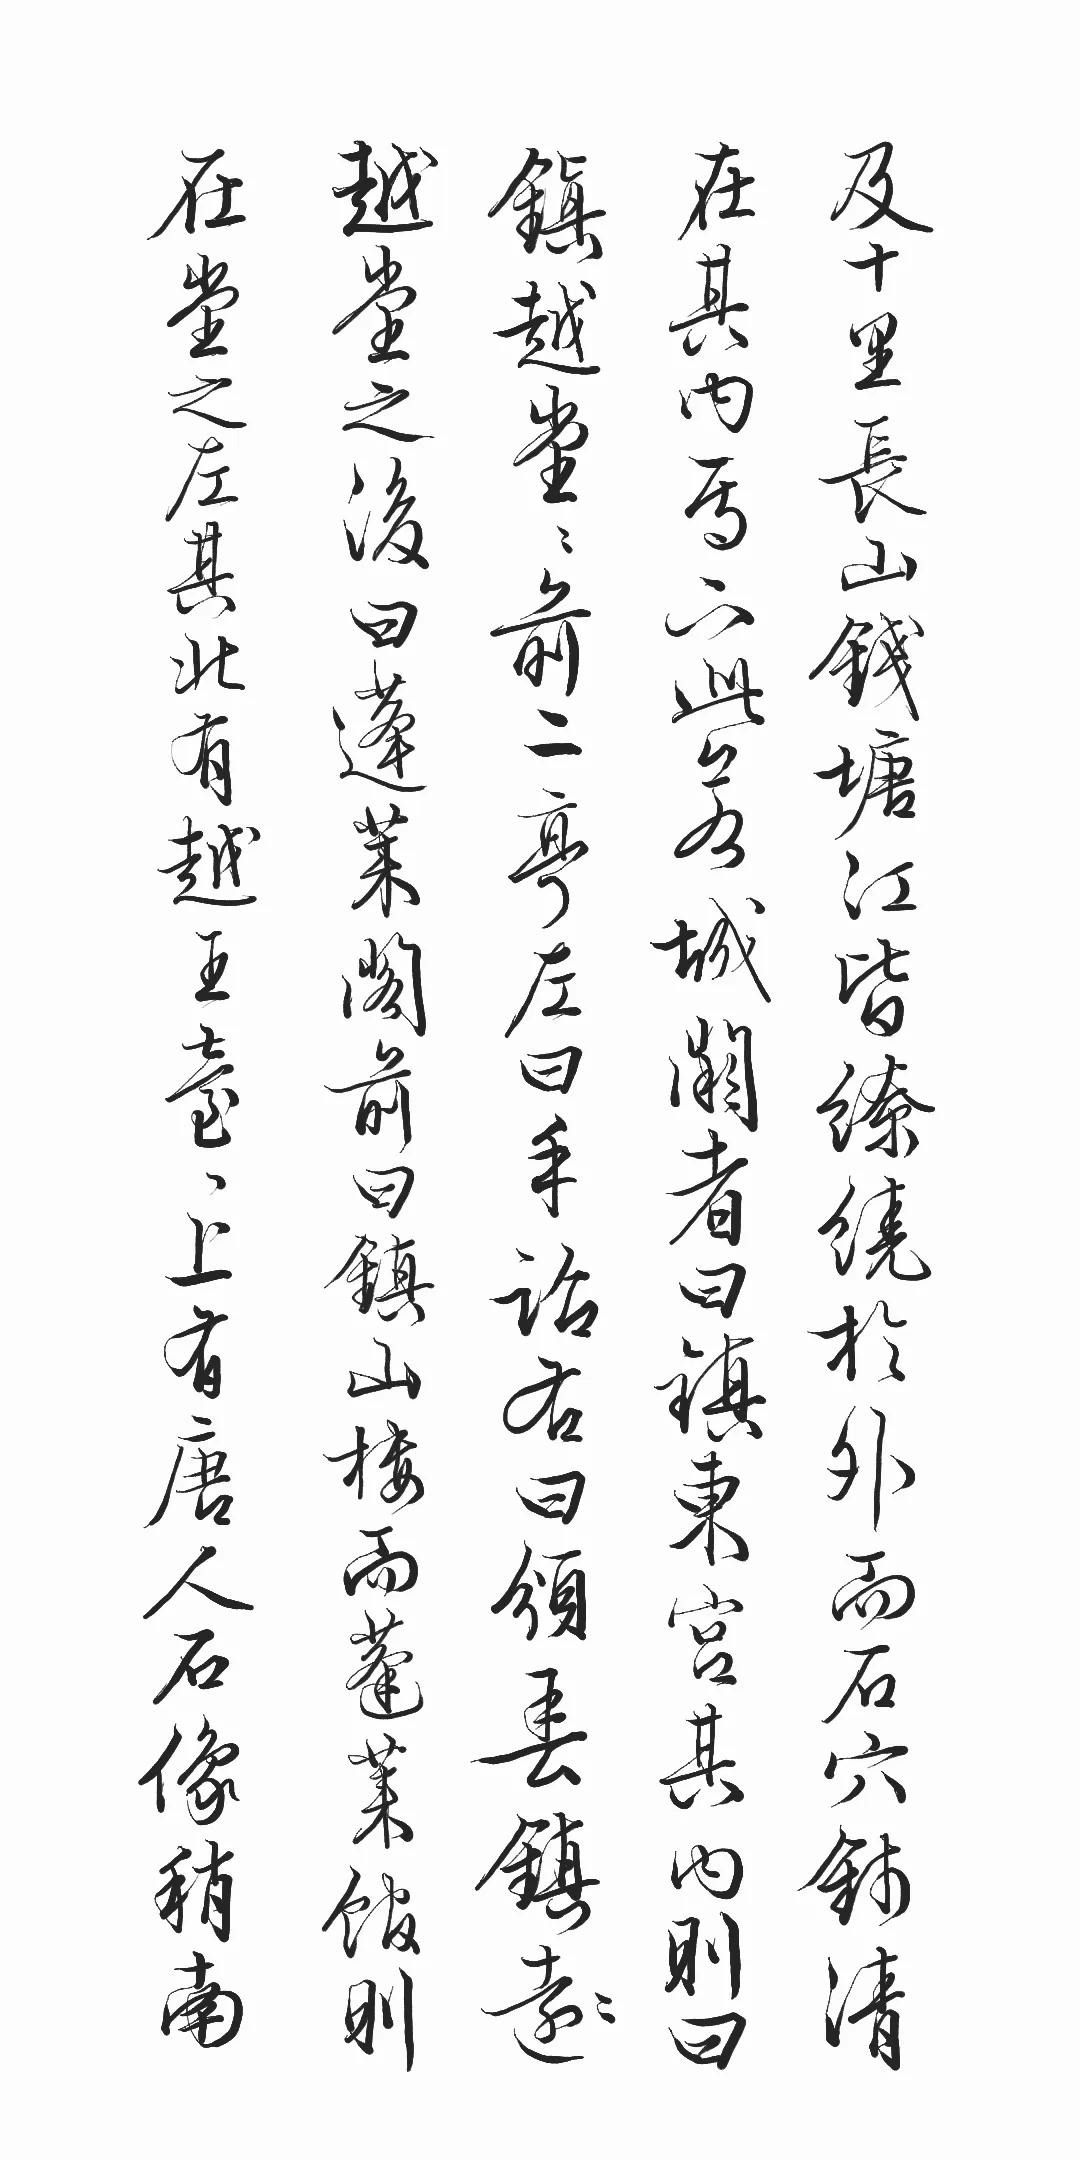 及十里長山錢塘江皆繚繞於外而石穴清
在其内焉下此若城闕者曰鎮東宮其内則曰
鎮越堂〻前二亭左曰手詔右曰頒春鎮遠〻
越堂之後曰蓬萊閣前曰鎮山樓而蓬萊館則
在堂之左其北有越王臺〻上有唐人石像稍南